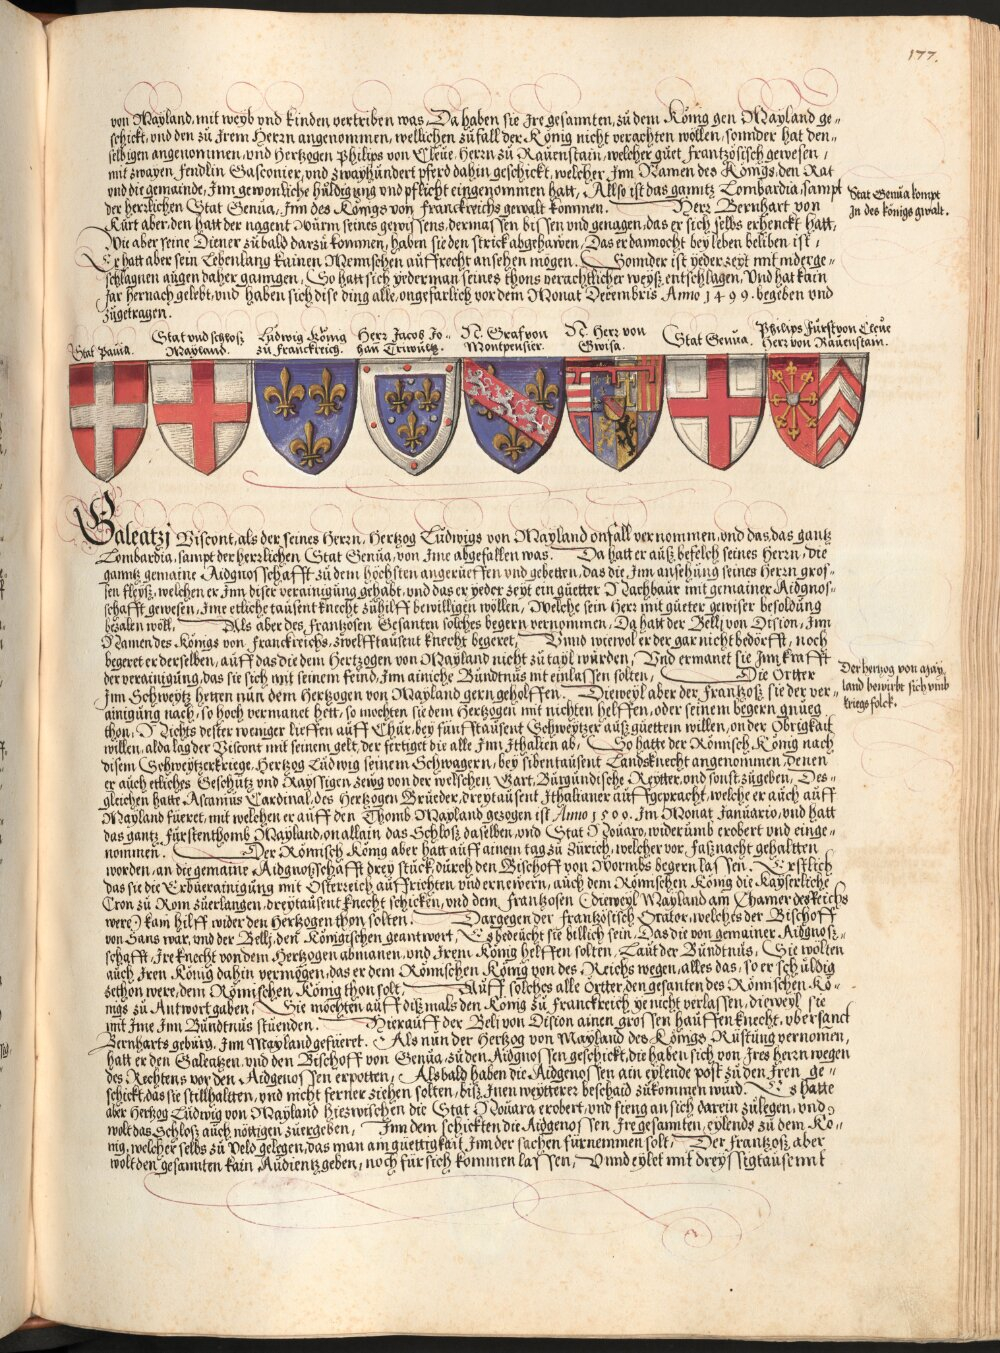 177.
von Mayland, mit weyb vnd kinden vertriben was, Da haben sie Ire gesannten, zu dem König gen Mayland ge-
schickt, vnd den zu Irem Herrn angenommen, wellichen zufall der König nicht verachten wöllen, sonnder hat den-
selbigen angenommen, vnd Hertzogen Philips von Cleue, Herrn zu Rauenstain, welcher guet Frantzösisch gewesen,
mit zwayen fendlin Gasconier, vnd zwayhundert pferd dahin geschickt, welcher Inn Namen des Königs, den Rat
vnd die gemainde, Inn gewonliche huldigung vnd pflicht eingenommen hatt, Allso ist das ganntz Lombardia, sampt
der herrlichen Stat Genua, Inn des Königs von Franckreichs gewalt kommen. Herr Bernhart von
Kurt aber, den hatt der nagent Wurm seines gewissens, dermassen bissen vnd genagen, das er sich selbs erhenckt hatt,
Wie aber seine Diener zu bald darzu kommen, haben sie den strick abgehawen, Das er dannocht bey leben beliben ist,
Er hatt aber sein Lebenlang kainen Mennschen auffrecht ansehen mögen. Sonnder ist yeder zeyt mit niderge-
schlagnen augen daher ganngen, So hatt sich yederman seines thons verachtlicher weyß, entschlagen, Vnd hat kain
Jar hernach gelebt, vnd haben sich dise ding alle, ongefarlich vor dem Monat Decembris Anno 1499. begeben vnd
zugetragen.
Stat Genua kompt
In des königs gwalt.
Stat Pauia.
Stat vnd schloß
Mayland.
Ludwig König
zu Franckreich.
Herr Jacob Jo-
han Triuultz.
N. Graf von
Montpensier.
N. Herr von
Gwisa.
Stat Genua.
Philips Fürst von Cleue
Herr von Rauenstain.
Galeatzj Viscont, als der seines Herrn, Hertzog Ludwigs von Mayland onfall vernommen, vnd das, das gantz
Lombardia, sampt der herrlichen Stat Genua, von Ime abgefallen was. Da hatt er auß befelch seines Herrn, die
ganntz gemaine Aidgnosschafft zu dem höchsten angerueffen vnd gebetten, das die Inn ansehung seines Herrn gros-
sen fleyß, welchen er Inn diser verainigung gehabt, vnd das er yeder zeyt ein guetter Nachbaur mit gemainer Aidgnos-
schafft gewesen, Ime etliche tausent knecht zu hilff bewilligen wöllen, Welche sein Herr mit gueter gewiser besoldung
bezalen wöll, Als aber des Frantzosen Gesanten solches begern vernommen, Da hatt der Bellj von Dision, Inn
Namen des Königs von Franckreichs, zwelfftausent knecht begeret, Vnnd wiewol er der gar nicht bedörfft, noch
begeret er derselben, auff das die dem Hertzogen von Mayland nicht zu tayl wurden, Vnd ermanet sie Inn krafft
der verainigung, das sie sich mit seinem feind, Inn ainiche Bündtnus mit einlassen solten, Die Örtter
Inn Schweytz hetten nun dem Hertzogen von Mayland gern geholffen. Dieweyl aber der Frantzoß sie der ver-
ainigung nach, so hoch vermanet hett, so mochten sie dem Hertzogen mit nichten helffen, oder seinem begern gnueg
thon, Nichts dester weniger lieffen auff Chur, bey fünfftausent Schweytzer auß guettem willen, on der Obrigkait
willen, alda lag der Viscont mit seinem gelt, der fertiget die alle Inn Ithalien ab, So hatte der Römisch König nach
disem Schweytzerkriege, Hertzog Ludwig seinem Schwagern, bey sibentausent Landsknecht angenommen, denen
er auch etliches Geschütz vnd Raysigen zewg von der welschen Gart, Burgundische Reytter, vnd sonst zugeben, Des-
gleichen hatte Ascanius Cardinal, des Hertzogen Brueder, dreytausent Ithalianer auffgepracht, welche er auch auff
Mayland fueret, mit welchen er auff den Thomb Mayland gezogen ist Anno 1500. Im Monat Januario, vnd hatt
das gantz Fürstenthomb Mayland, on allain das Schloß daselben, vnd Stat Nouaro, widerumb erobert vnd einge-
nommen. Der Römisch König aber hatt auff ainem tag zu Zürich, welcher vor faßnacht gehaltten
worden, an die gemaine Aidgnoßschafft drey stuck, durch den Bischoff von Wormbs begern lassen. Erstlich
das sie die Erbuerainigung mit Österreich auffrichten vnd ernewern, auch dem Römischen König die Kayserliche
Cron zu Rom zuerlangen, dreytausent knecht schicken, vnd dem Frantzosen (dieweyl Mayland am Chamer des Reichs
were) kain hilff wider den Hertzogen thon solten. Dargegen der Frantzösisch Orator, welches der Bischoff
von Sans war, vnd der Bellj, den Königischen geantwort, Es bedeucht sie billich sein, Das die von gemainer Aidgnoß-
schafft, Ire knecht von dem Hertzogen abmanen, vnd Irem König helffen solten, Laut der Bündtnus, Sie wolten
auch Iren König dahin vermögen, das er dem Römischen König von des Reichs wegen, alles das, so er schuldig
zethon were, dem Römischen König thon solt, Auff solches alle Örtter, den gesanten des Römischen Kö-
nigs zu Antwort gaben, Sie möchten auff dißmals den König zu Franckreich ye nicht verlassen, dieweyl sie
mit Ime Inn Bündtnus stuenden. Hierauff der Beli von Dision ainen grossen hauffen knecht, vber sanct
Bernharts gebürg, Inn Mayland gefueret. Als nun der Hertzog von Mayland des Königs Rüstung vernomen,
hatt er den Galeatzen, vnd den Bischoff von Genua, zu den Aidgnossen geschickt, die haben sich von Ires Herrn wegen
des Rechtens vor den Aidgenossen erpotten, Alsbald haben die Aidgenossen ain eylende post zu den Iren ge-
schickt, das sie stillhaltten, vnd nicht ferner ziehen solten, biß Inen weytterer beschaid zukommen wurd. Es hatte
aber Hertzog Ludwig von Mayland hiezwischen die Stat Nouara erobert, vnd fieng an sich darein zulegen, vnd
wolt das Schloß auch nöttigen zuergeben, Inn dem schickten die Aidgenossen Ire gesannten, eylends zu dem Kö-
nig, welcher selbs zu Veld gelegen, das man am guettigkait Inn der sachen fürnemmen solt, Der Frantzoß aber
wolt den gesannten kain Audientz geben, noch für sich kommen lassen, Vnnd eylet mit dreyssigtausennt
Der hertzog von May-
land bewirbt sich vmb
kriegs folck.